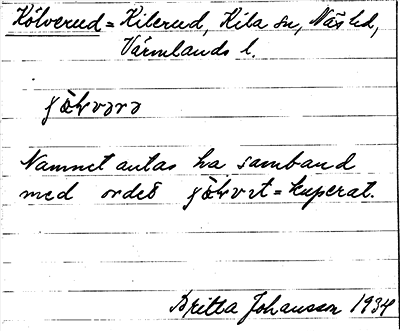 Kölverud = Kilerud, Kila sn, Näs hd,
Värmlands l.
Namnet antas ha samband
med ordet = kuperat.
Britta Johansson 1934